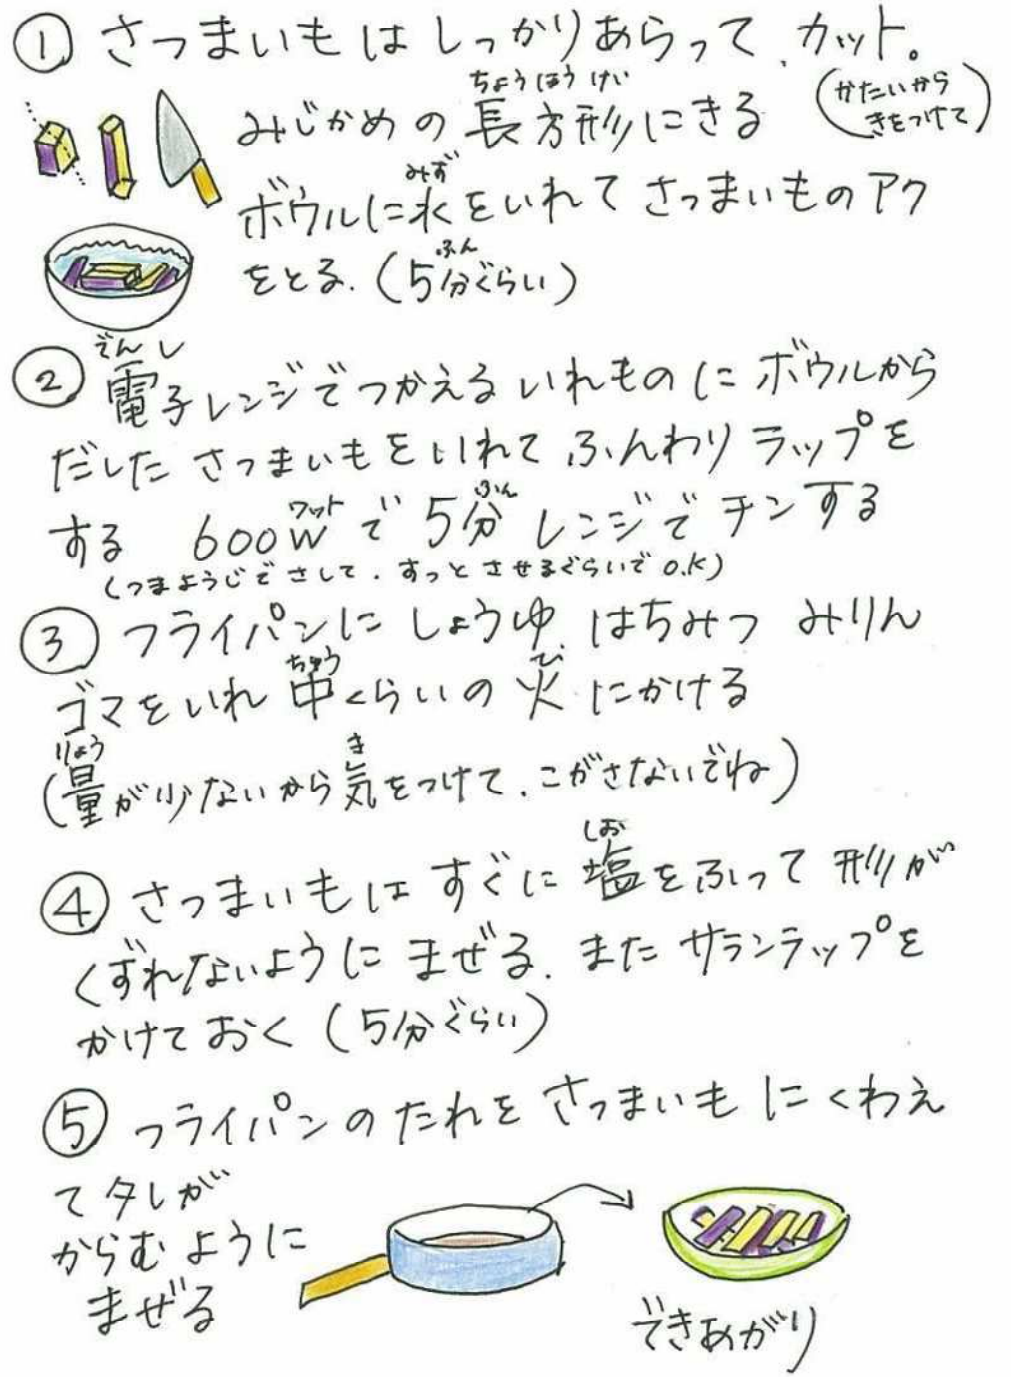 ① さつまいもは しっかりあらって、カット。
ちょうほうけい
みじかめの 長方形にきる
(かたいから
きをつけて)
みず
ボウルに水をいれて さつまいものアク
ふん
をとる.(5分ぐらい)
でんし
② 電子レンジでつかえる いれものに ボウルから
だした さつまいもをいれて ふんわり ラップを
ワット ふん
する 600Wで 5分 レンジで チンする
(つまようじでさして、すっと させるぐらいでO.K)
③ フライパンに しょうゆ はちみつ みりん
ちゅう ひ
ゴマをいれ 中くらいの 火 にかける
りょう き
(量が少ないから気をつけて、こがさないでね)
しお
④ さつまいもは すぐに 塩をふって 形が
くずれないように まぜる、また サランラップを
かけて おく (5分ぐらい)
⑤ フライパンの たれを さつまいも にくわえ
て タレが
からむ ように
まぜる
できあがり